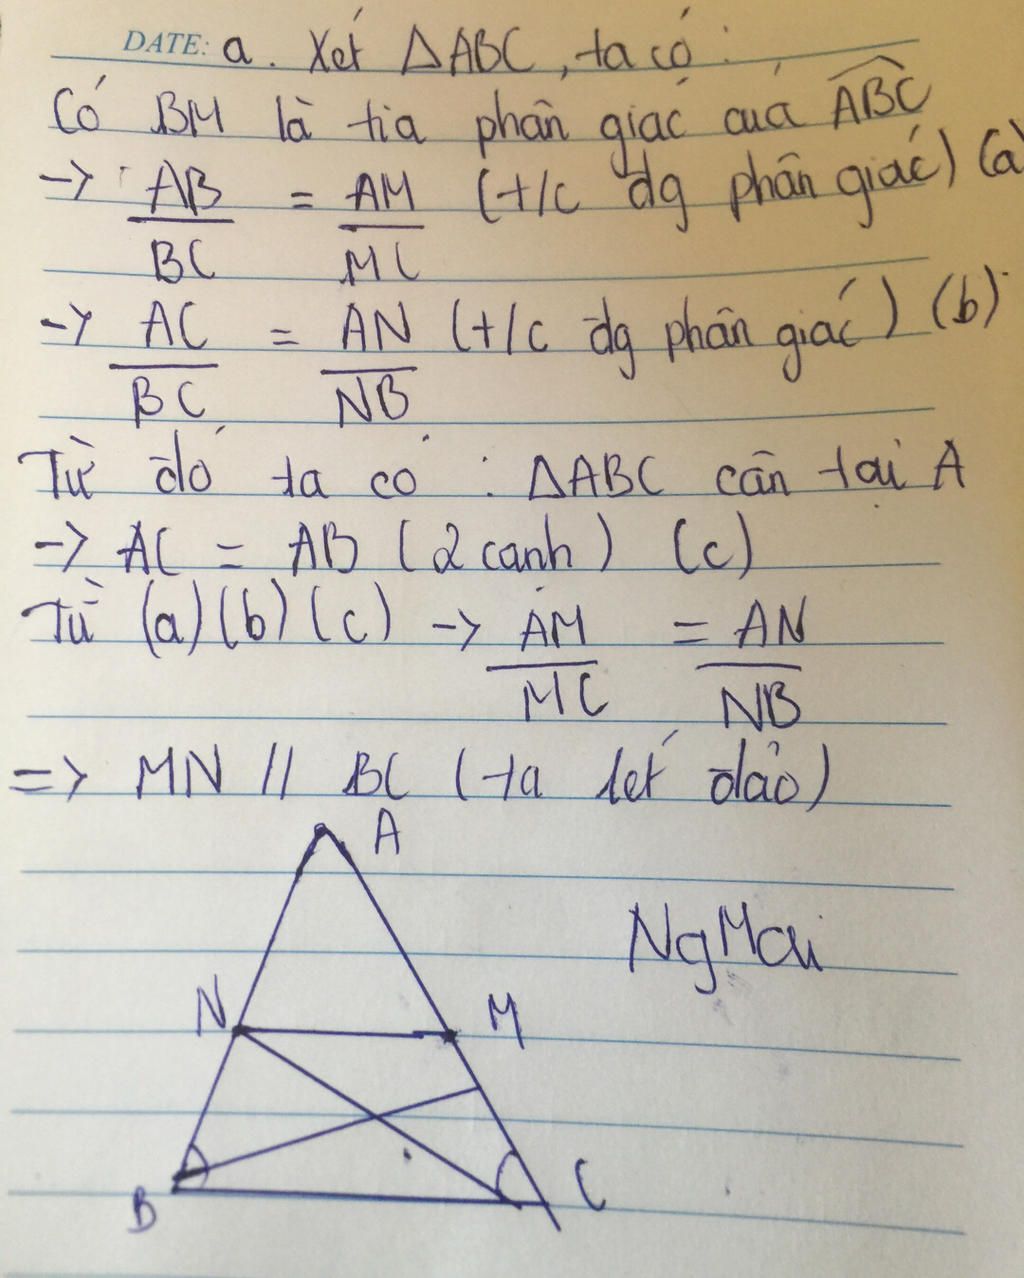 DATE: a. Xét ΔABC, ta có:
Có BM là tia phân giác của ABC
-> AB/BC = AM/MC (t/c đg phân giác) (a)
-> AC/BC = AN/NB (t/c đg phân giác) (b)
Từ đó ta có : ΔABC cân tại A
-> AC = AB (2 canh) (c)
Từ (a)(b)(c) -> AM/MC = AN/NB
=> MN // BC (ta lét đảo)
A
NgMai
N M
B C